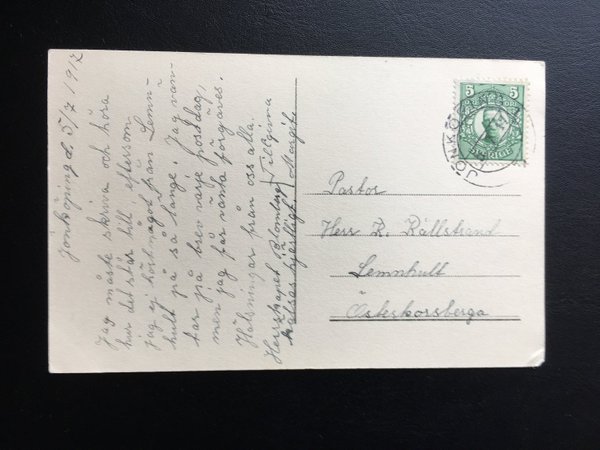 Jönköping d. 5/7 1912
Jag måste skriva och höra
hur det står till, eftersom
jag ej hört något från Lemn-
hult på så länge. Jag vän-
tar på brev varje postdag,
men jag får vänta förgäves.
Hälsningar från oss alla.
Tillgivna
Margit.
Herrskapet Blomberg
hälsas hjärtligt.
5 5
ÖRE
SVERIGE
JÖNKÖPING
Pastor
Herr K. Rällstrand
Lemnhult
Österkorsberga